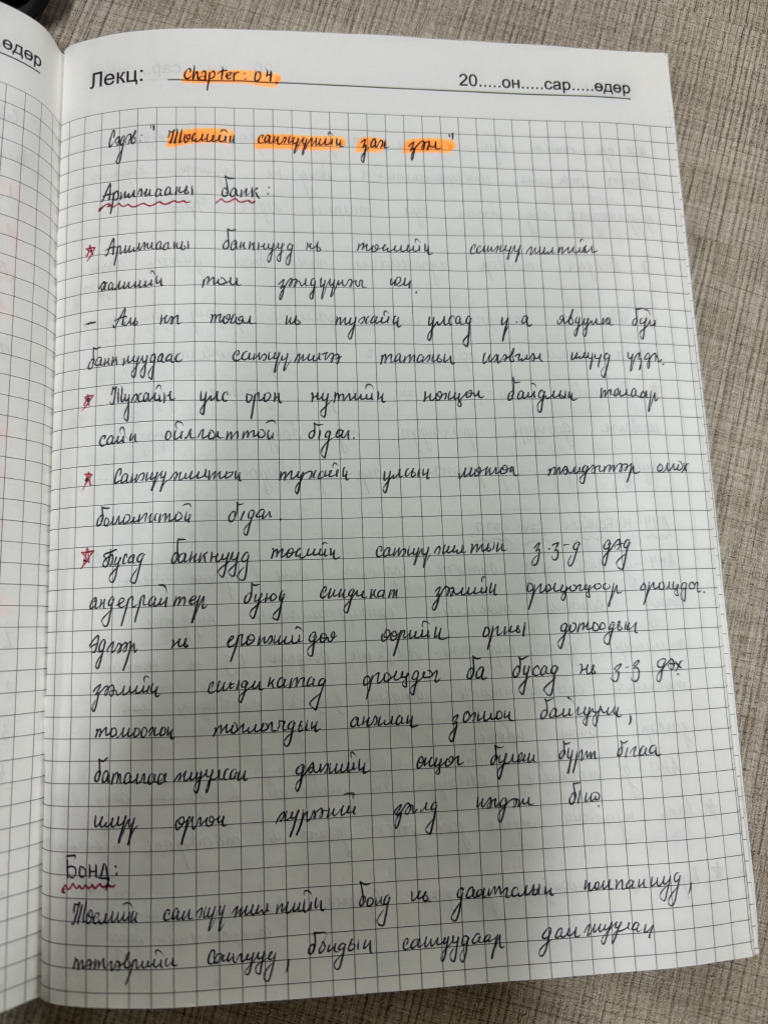 өдөр
Лекц: Chapter: 04.
20.....он.....сар.....өдөр
Сэдэв: "Төслийн санхүүгийн зах зээл"
Арилжааны банк:
* Арилжааны банкнууд нь төслийн санхүүжилтийн
хамгийн том зээлдүүлэгч юм.
- Аль нэг төсөл нь тухайн улсад ү.а явуулж буй
банкнуудаас санхүүжилтээ татахыг илүүд үздэг.
* Тухайн улс орон нутгийн нөхцөл байдлын талаар
сайн ойлголттой бдаг.
* Санхүүжилтээ тухайн улсын мөнгөн тэмдэгтээр олох
боломжтой бдаг.
* Бусад банкнууд төслийн санхүүжилтийн з.з-д дэд
андеррайтер буюу синдикат зээлийн оролцогчоор оролцдог.
Эдгээр нь ерөнхийдөө өөрийн орны дотоодын
зээлийн синдикатад оролцдог ба бусад нь з.з дэх
томоохон тоглогчдын анхлан зохион байгуулж,
баталгаажуулсан дэлхийн өнцөг булан бүрт бгаа
илүү өргөн хүрээний зээлд нэгдэж бна.
Бонд:
Төслийн санхүүжилтийн бонд нь даатгалын компаниуд,
тэтгэврийн сангууд, бондын сангуудаар дамжуулан